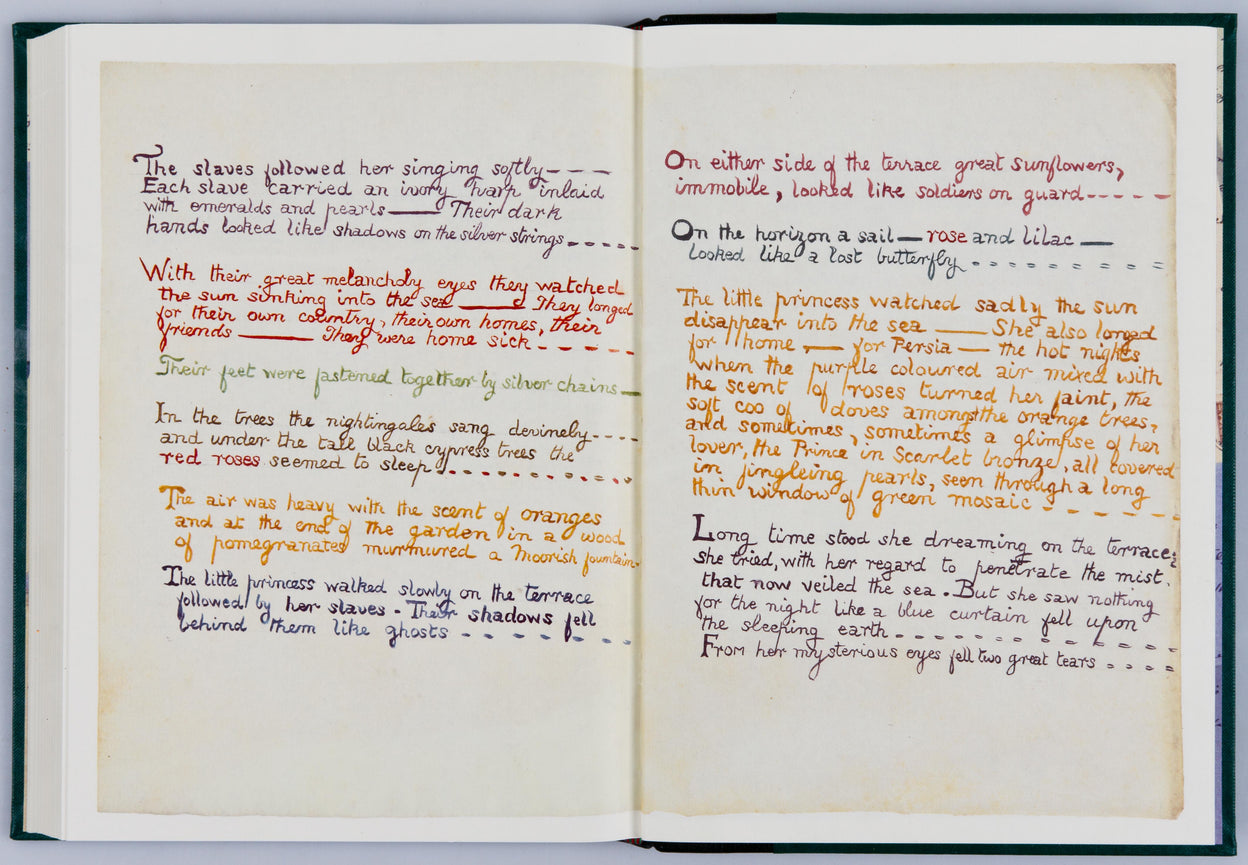 The slaves followed her singing softly----
Each slave carried an ivory harp inlaid
with emeralds and pearls—— Their dark
hands looked like shadows on the silver strings-----
With their great melancholy eyes they watched
the sun sinking into the sea —— They longed
for their own country, their own homes, their
friends —— They were home sick----
Their feet were fastened together by silver chains—
In the trees the nightingales sang devinely----
and under the tall black cypress trees the
red roses seemed to sleep..........
The air was heavy with the scent of oranges
and at the end of the garden in a wood
of pomegranates murmured a Moorish fountain-
The little princess walked slowly on the terrace
followed by her slaves - Their shadows fell
behind them like ghosts -------
On either side of the terrace great sunflowers,
immobile, looked like soldiers on guard-----
On the horizon a sail — rose and lilac —
looked like a lost butterfly = = = = = = = = =
The little princess watched sadly the sun
disappear into the sea —— She also longed
for home — for Persia — the hot nights
when the purple coloured air mixed with
the scent of roses turned her faint, the
soft coo of doves among the orange trees,
and sometimes, sometimes a glimpse of her
lover, the Prince in Scarlet bronze, all covered
in jingleing pearls, seen through a long
thin window of green mosaic - - - - - -
Long time stood she dreaming on the terrace;
she tried, with her regard to penetrate the mist.
that now veiled the sea. But she saw nothing
for the night like a blue curtain fell upon
the sleeping earth - - - - = = = = = =
From her mysterious eyes fell two great tears = = = =